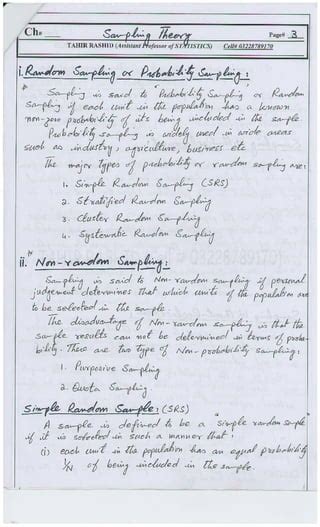 Ch# Sampling Theory Page# 3
TAHIR RASHID (Assistant Professor of STATISTICS) Cell# 03228789170
i. Random Sampling or Probability Sampling:
Sampling is said to "Probability Sampling or Random
Sampling if each unit in the population has a known
non-zero probability of it's being included in the sample
Probability sampling is widely used in wide areas
such as industry, agriculture, business etc
The major types of probability or random sampling are:
1. Simple Random Sampling (SRS)
2. Stratified Random Sampling
3. Cluster Random Sampling
4. Systematic Random Sampling
ii. Non-random Sampling:
Sampling is said to Non-random sampling if personal
judgement determines that which units of the population are
to be selected in the sample.
The disadvantage of Non-random sampling is that the
sample results can not be determined in terms of proba-
bility. There are two type of Non-probability sampling:
1. Purposive Sampling
2. Quota Sampling.
Simple Random Sample: (SRS)
A sample is defined to be a "simple random sample"
if it is selected in such a manner that:
(i) each unit in the population has an equal probability
1/N of being included in the sample.